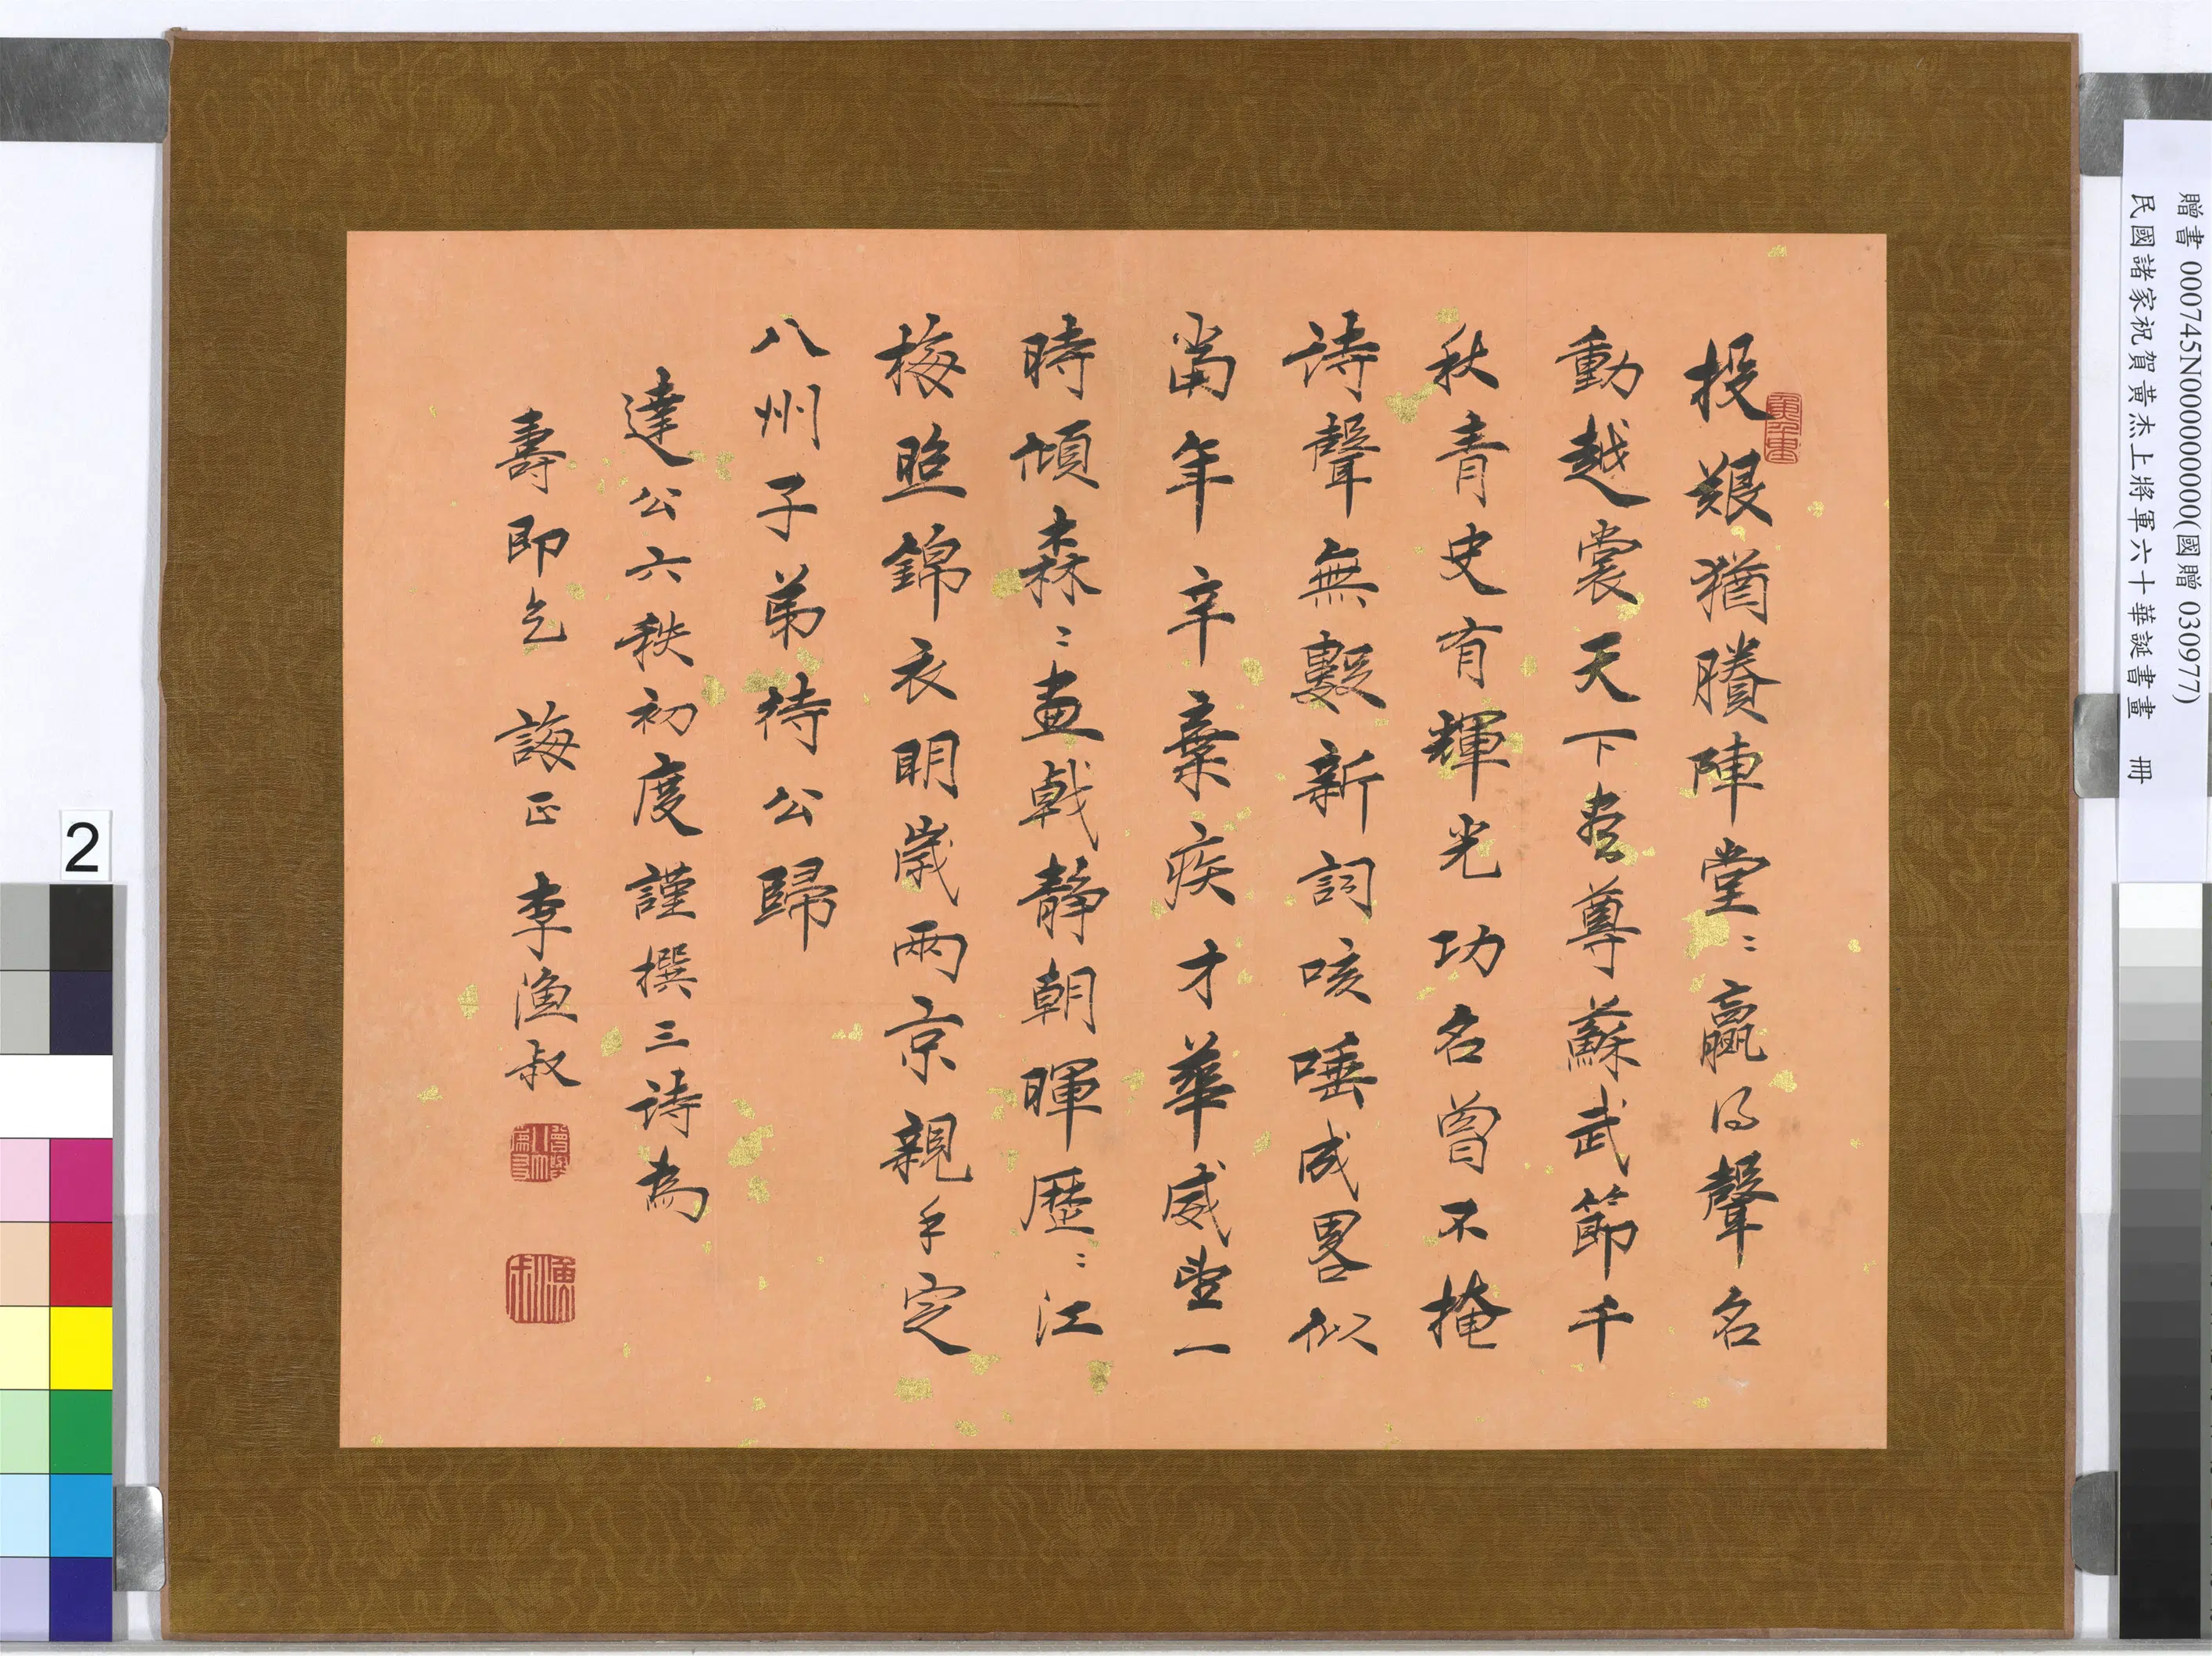 贈書 000745N000000000(國贈 030977)
民國諸家祝賀黃杰上將軍六十華誕書畫 冊
投艱猶賸陣堂〻贏得聲名
動越裳天下盡尊蘇武節千
秋青史有輝光功名曾不掩
詩聲無數新詞咳唾成畧似
當年辛棄疾才華威望一
時傾森〻畫戟靜朝暉歷〻江
梅照錦衣明歲兩京親手定
八州子弟待公歸
達公六秩初度謹撰三詩為
壽即乞 誨正 李漁叔
漁叔
2